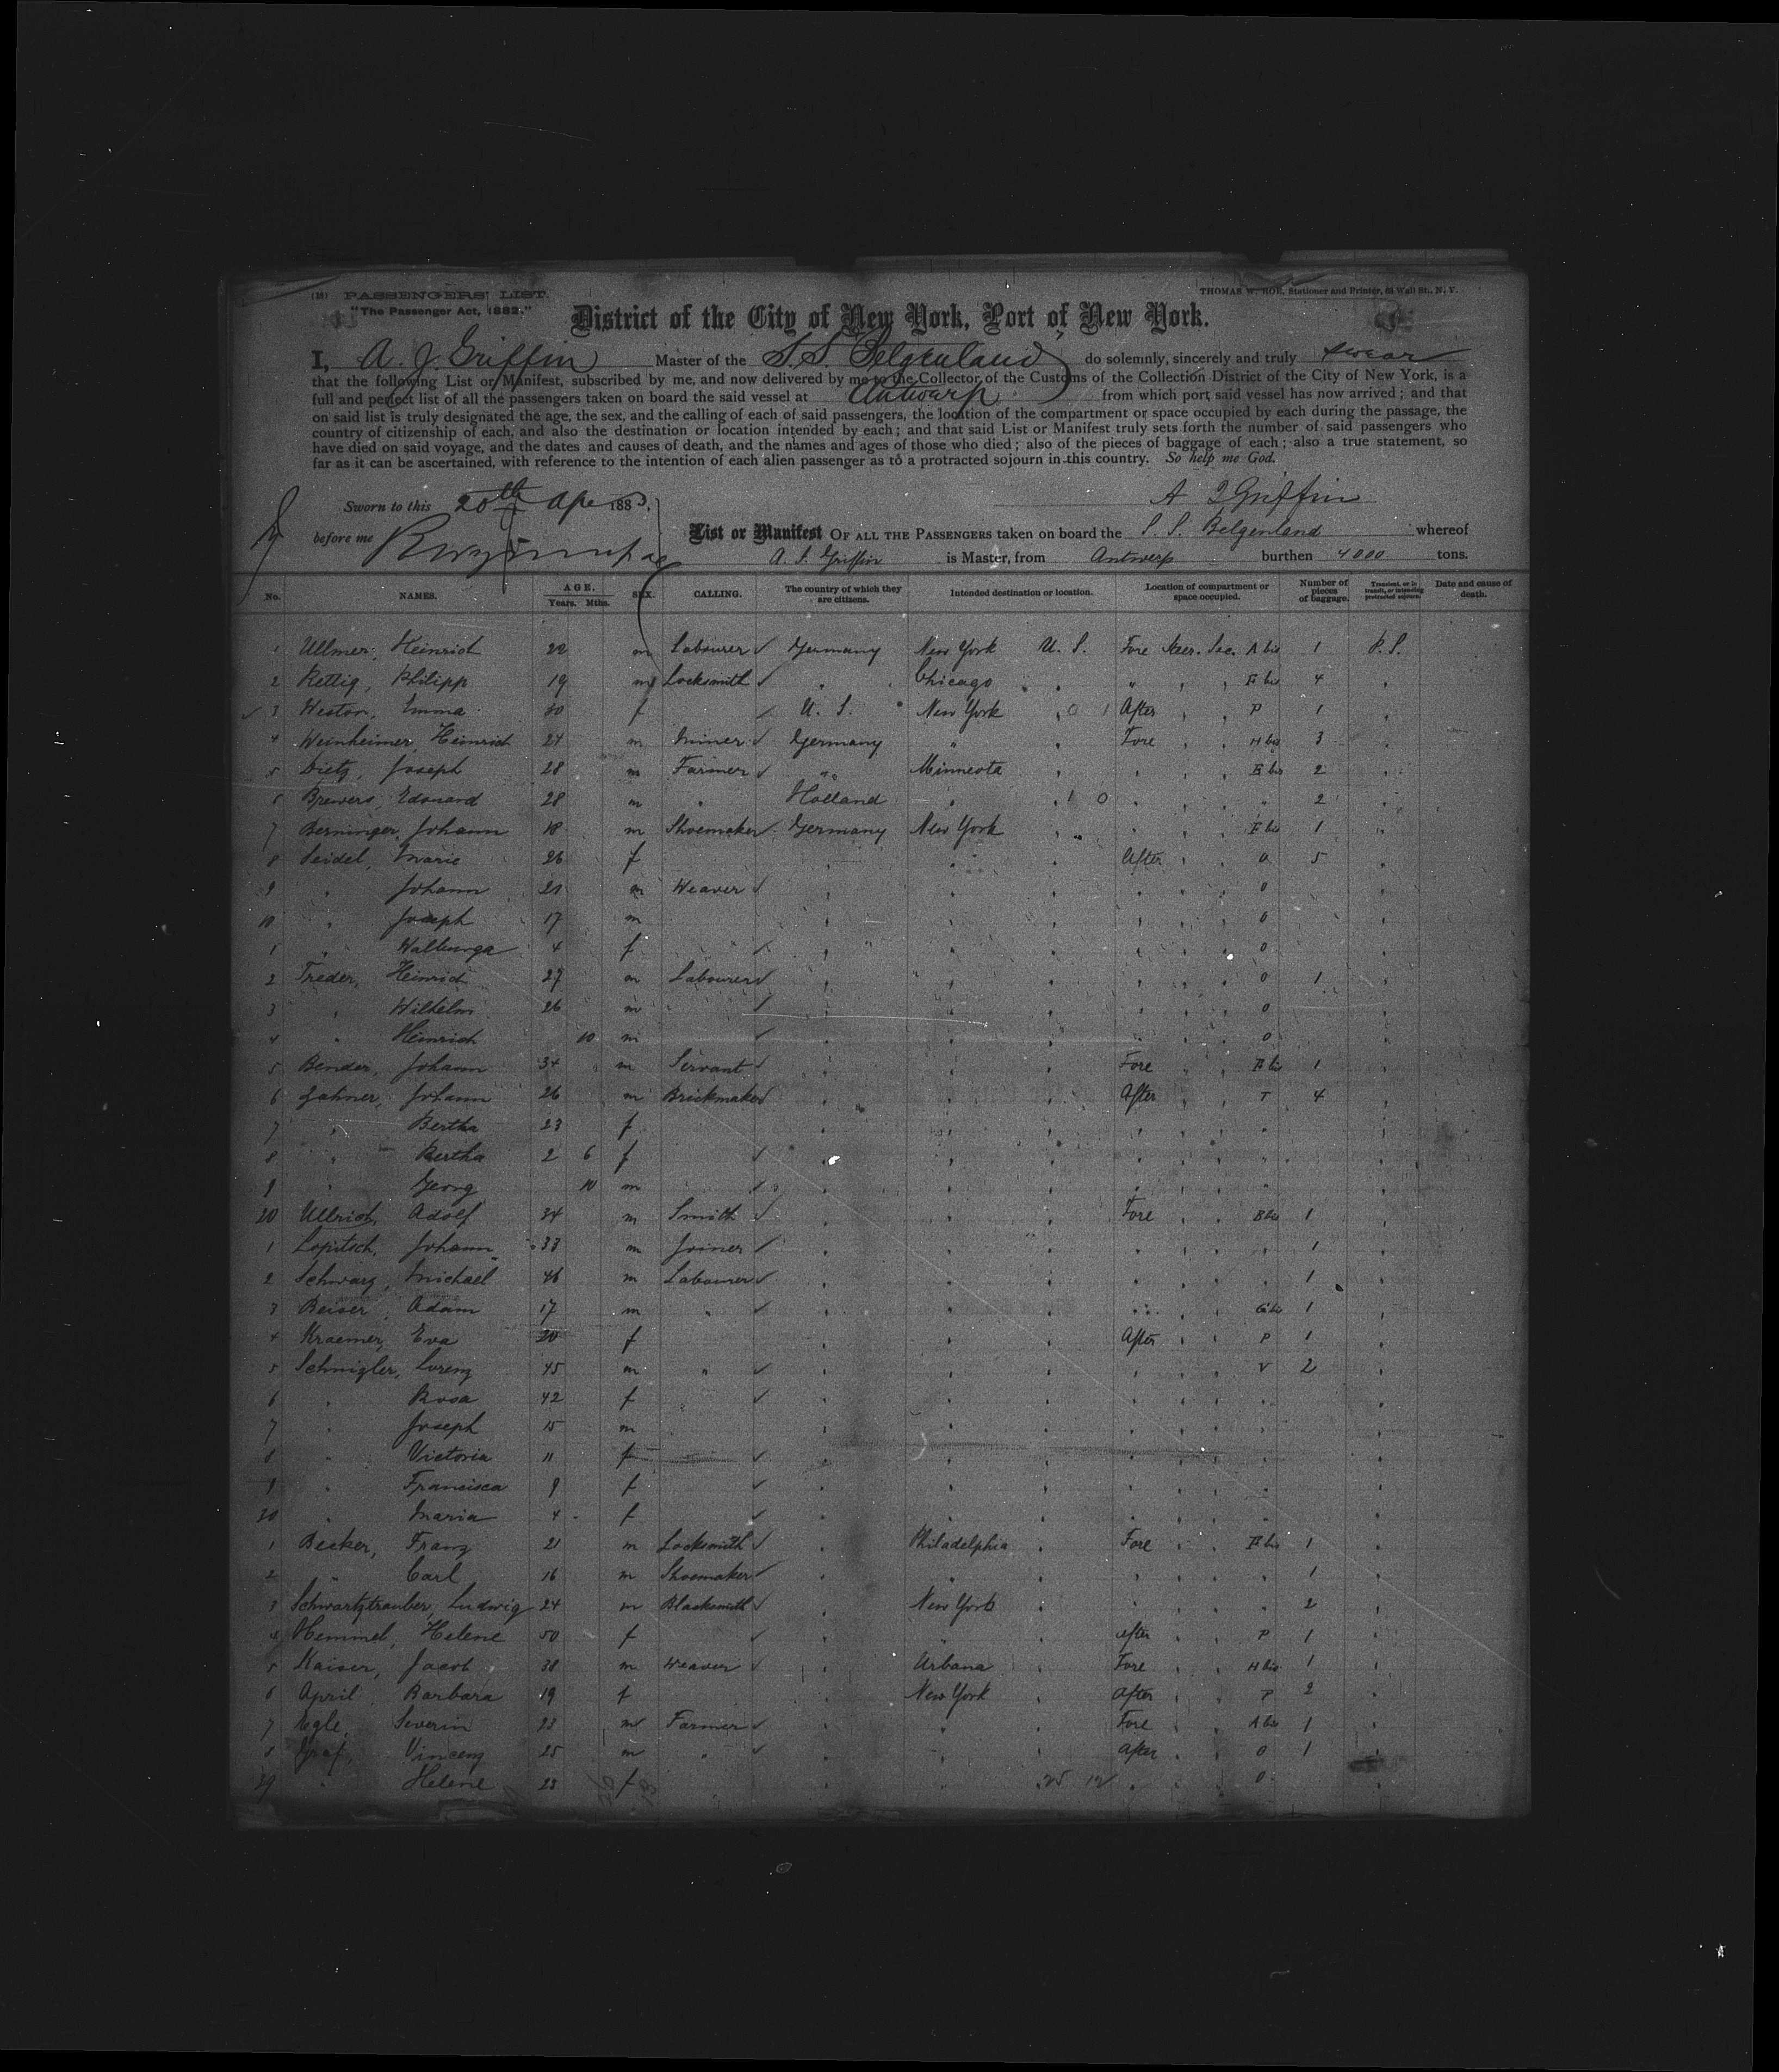 (18) PASSENGERS' LIST.
THOMAS W. ROE, Stationer and Printer, 64 Wall St., N. Y.
"The Passenger Act, 1882."
District of the City of New York, Port of New York.
I, A. J. Griffin Master of the S.S. Belgenland do solemnly, sincerely and truly swear
that the following List or Manifest, subscribed by me, and now delivered by me to the Collector of the Customs of the Collection District of the City of New York, is a
full and perfect list of all the passengers taken on board the said vessel at Antwerp from which port said vessel has now arrived; and that
on said list is truly designated the age, the sex, and the calling of each of said passengers, the location of the compartment or space occupied by each during the passage, the
country of citizenship of each, and also the destination or location intended by each; and that said List or Manifest truly sets forth the number of said passengers who
have died on said voyage, and the dates and causes of death, and the names and ages of those who died; also of the pieces of baggage of each; also a true statement, so
far as it can be ascertained, with reference to the intention of each alien passenger as to a protracted sojourn in this country. So help me God.
Sworn to this 20th Apr 1883,
A J Griffin
before me
List or Manifest OF ALL THE PASSENGERS taken on board the S. S. Belgenland whereof
A. J. Griffin is Master, from Antwerp burthen 4000 tons.
No. NAMES. AGE. Years. Mths. SEX. CALLING. The country of which they are citizens. Intended destination or location. Location of compartment or space occupied. Number of pieces of baggage. Transient, or in transit, or intending protracted sojourn. Date and cause of death.
1 Ullmer, Heinrich 22 m Labourer Germany New York U. S. Fore Steer. Sec. A bis 1 P. S.
2 Rettig, Philipp 19 m Locksmith " Chicago " " E bis 4 "
3 Weston, Emma 30 f U. S. New York 0 1 After " P 1 "
4 Weinheimer, Heinrich 24 m Miner Germany " Fore " H bis 3 "
5 Dietz, Joseph 28 m Farmer " Minneota " " E bis 2 "
6 Brewers, Edouard 28 m " Holland " 1 0 " " 2 "
7 Berninger, Johann 18 m Shoemaker Germany New York " " E bis 1 "
8 Seidel, Marie 26 f " " After " O 5 "
9 " Johann 21 m Weaver " " " O "
10 " Joseph 17 m " " " O "
1 " Walburga 4 f " " " O "
2 Treder, Heinrich 27 m Labourer " " " O 1 "
3 " Wilhelm 26 m " " " O "
4 " Heinrich 10 m " " " O "
5 Bender, Johann 34 m Servant " " Fore " E bis 1 "
6 Jahner, Johann 26 m Brickmaker " " After " T 4 "
7 " Bertha 23 f " " " " "
8 " Bertha 2 6 f " " " " "
9 " Georg 10 m " " " " "
20 Ullrich, Adolf 34 m Smith " " Fore " B bis 1 "
1 Lopitsch, Johann 33 m Joiner " " " " 1 "
2 Schwarz, Michael 46 m Labourer " " " " 1 "
3 Beiser, Adam 17 m " " " " G bis 1 "
4 Kraemer, Eva 20 f " " After " P 1 "
5 Schnigler, Lorenz 45 m " " " " V 2 "
6 " Rosa 42 f " " " " "
7 " Joseph 15 m " " " " "
8 " Victoria 11 f " " " " "
9 " Francisca 9 f " " " " "
30 " Maria 4 f " " " " "
1 Becker, Franz 21 m Locksmith " Philadelphia " Fore " E bis 1 "
2 " Carl 16 m Shoemaker " " " " 1 "
3 Schwartztrauber, Ludwig 24 m Blacksmith " New York " " " 2 "
4 Hemmel, Helene 50 f " " After " P 1 "
5 Kaiser, Jacob 38 m Weaver " Urbana " Fore " H bis 1 "
6 April, Barbara 19 f " New York " After " P 2 "
7 Regle, Severin 23 m Farmer " " Fore " A bis 1 "
8 Graf, Vincenz 25 m " " " After " O 1 "
39 " Helene 23 f " " 25 12 " O "